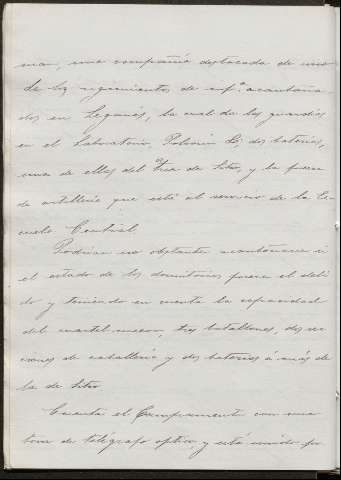 man, una compañía destacada de uno
de los regimientos de infª. acantona
dos en Leganés, la cual da las guardias
en el Laboratorio, Polvorín &, dos baterías,
una de ellas del Tren de Sitio, y la fuerza
de artillería que está al servicio de la Es-
cuela Central.
Podrían no obstante acantonarse si
el estado de los dormitorios fuera el debi
do y teniendo en cuenta la capacidad
del cuartel nuevo, tres batallones, dos sec
ciones de caballería y dos baterías á más de
la de Sitio.
Cuenta el Campamento con una
torre de telégrafo optico, y está unido por